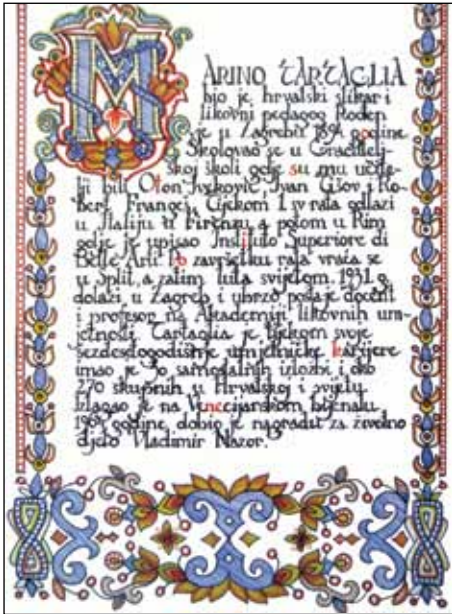 MARINO TARTAGLIA
bio je hrvatski slikar i
likovni pedagog. Rođen
je u Zagrebu 1894 godine.
Školovao se u Graditelj-
skoj školi gdje su mu učite-
lji bili Oton Iveković, Ivan Tišov i Ro-
bert Frangeš. Tijekom I sv rata odlazi
u Italiju u Firenzu a potom u Rim
gdje je upisao Instituto Superiore di
Belle Arti. Po završetku rata vraća se
u Split, a zatim luta svijetom. 1931. g.
dolazi u Zagreb i ubrzo postaje docent
i profesor na Akademiji likovnih um-
jetnosti. Tartaglia je tijekom svoje
šezdesetogodišnje umjetničke karijere
imao je 30 samostalnih izložbi i oko
270 skupnih u Hrvatskoj i svijetu.
Izlagao je na Venecijanskom bijenalu.
1964 godine, dobio je nagradu za životno
djelo Vladimir Nazor.